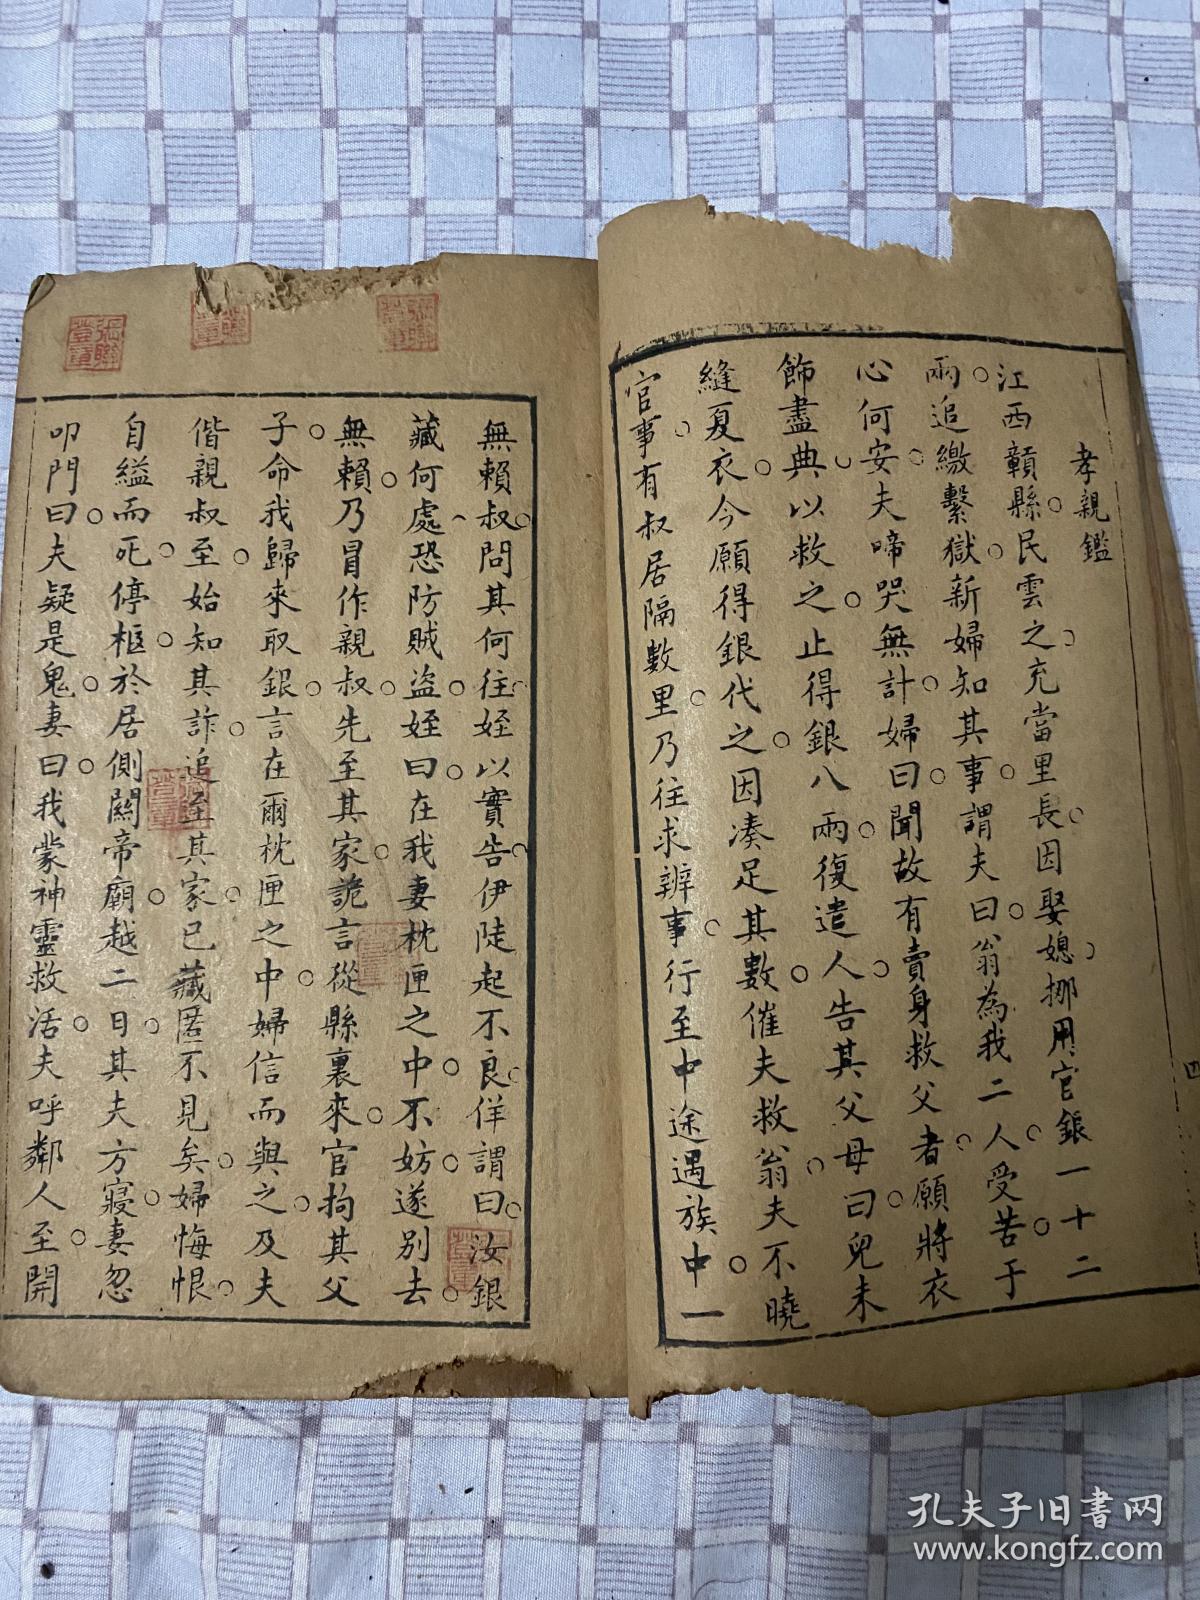 孝親鑑
江西贛縣民雲之充當里長因娶媳挪用官銀一十二
兩追繳繫獄新婦知其事謂夫曰翁為我二人受苦于
心何安夫啼哭無計婦曰聞故有賣身救父者願將衣
飾盡典以救之止得銀八兩復遣人告其父母曰兒未
縫夏衣今願得銀代之因凑足其數催夫救翁夫不曉
官事有叔居隔數里乃往求辦事行至中途遇族中一
四
無賴叔問其何往姪以實告伊陡起不良佯謂曰汝銀
藏何處恐防賊盜姪曰在我妻枕匣之中不妨遂別去
無賴乃冒作親叔先至其家詭言從縣裏來官拘其父
子命我歸來取銀言在爾枕匣之中婦信而與之及夫
偕親叔至始知其詐追至其家已藏匿不見矣婦悔恨
自縊而死停柩於居側關帝廟越二日其夫方寢妻忽
叩門曰夫疑是鬼妻曰我蒙神靈救活夫呼鄰人至開
張聯
登章
孔夫子旧书网
www.kongfz.com